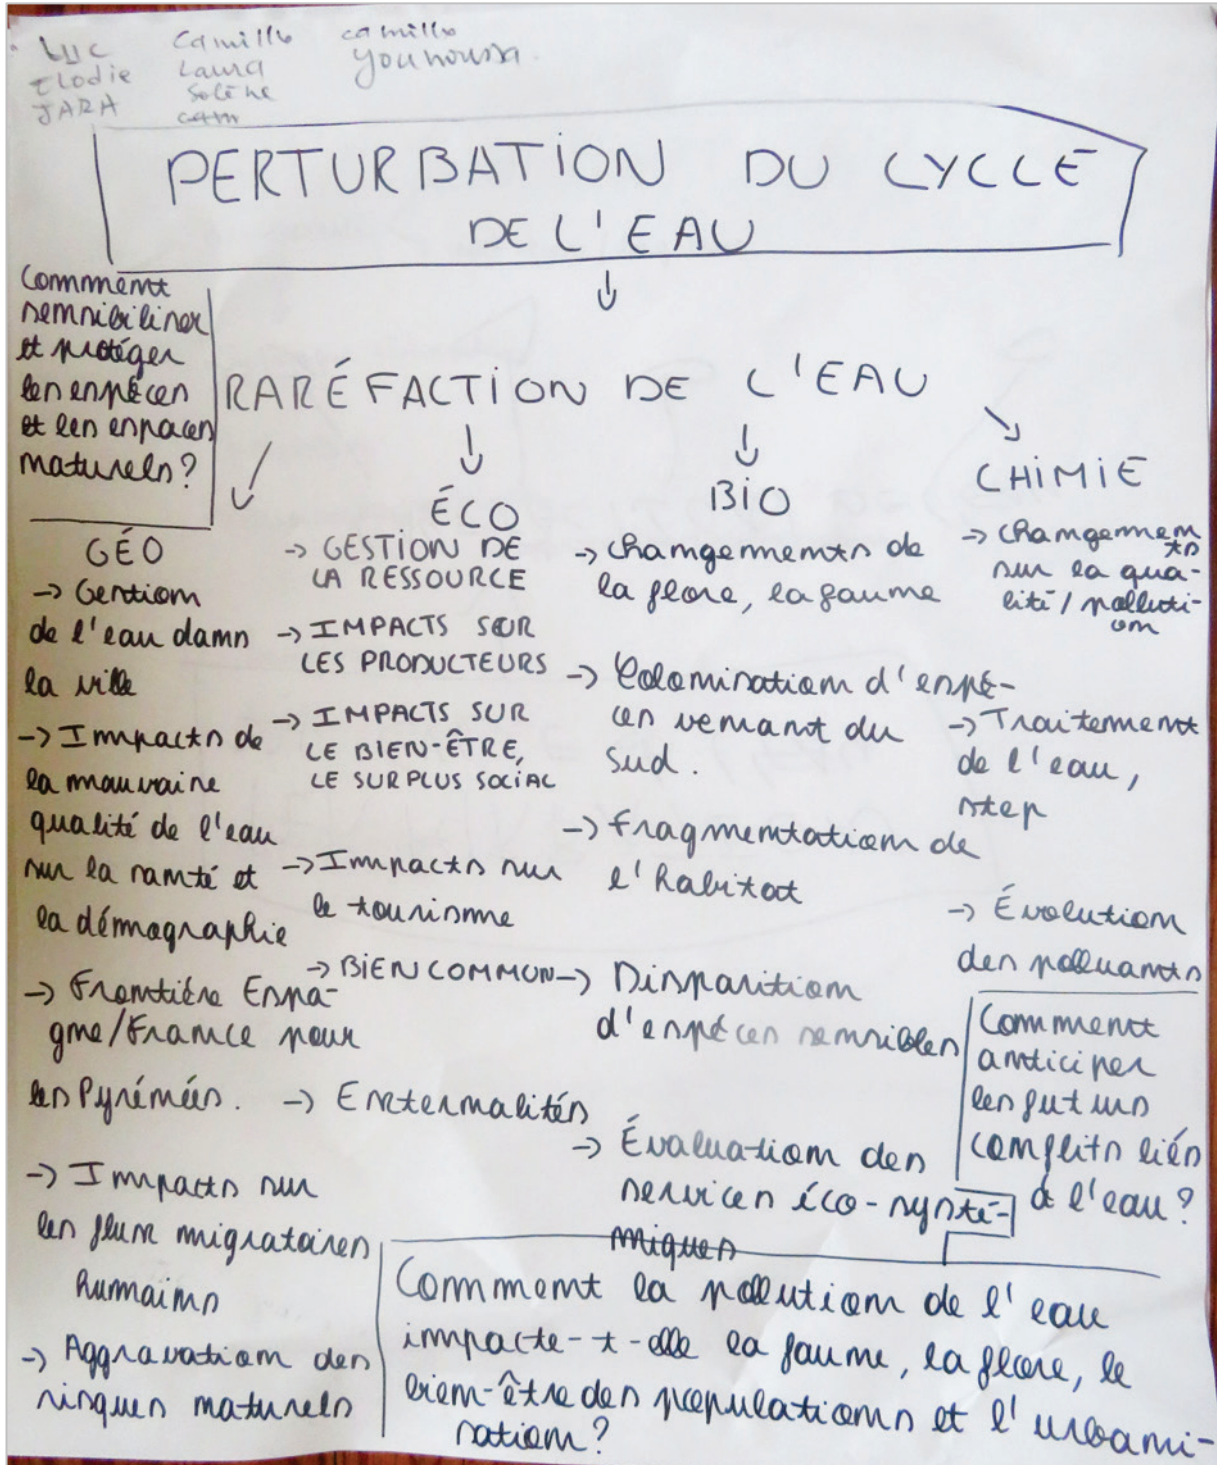 LUC Camille camille
Elodie Laura Younoussa.
JARA Solène
cam
PERTURBATION DU CYCLE
DE L'EAU
Comment
sensibiliser
et protéger
les espèces
et les espaces
naturels?
RARÉFACTION DE L'EAU
GÉO
-> Gestion
de l'eau dans
la ville
-> Impacts de
la mauvaise
qualité de l'eau
sur la santé et
la démographie
-> Frontière Espa-
gne/France pour
les Pyrénées.
-> Impacts sur
les flux migratoires
humains
-> Aggravation des
risques naturels
ÉCO
-> GESTION DE
LA RESSOURCE
-> IMPACTS SUR
LES PRODUCTEURS
-> IMPACTS SUR
LE BIEN-ÊTRE,
LE SURPLUS SOCIAL
-> Impacts sur
le tourisme
-> BIEN COMMUN
-> Externalités
BIO
-> Changements de
la flore, la faune
-> Colonisation d'espè-
ces venant du
sud.
-> Fragmentation de
l'habitat
-> Disparition
d'espèces sensibles
-> Évaluation des
services éco-systé-
miques
CHIMIE
-> Changemen
ts
sur la qua-
lité / polluti-
on
-> Traitement
de l'eau,
step
-> Évolution
des polluants
Comment
anticiper
les futurs
conflits liés
à l'eau?
Comment la pollution de l'eau
impacte-t-elle la faune, la flore, le
bien-être des populations et l'urbani-
sation?